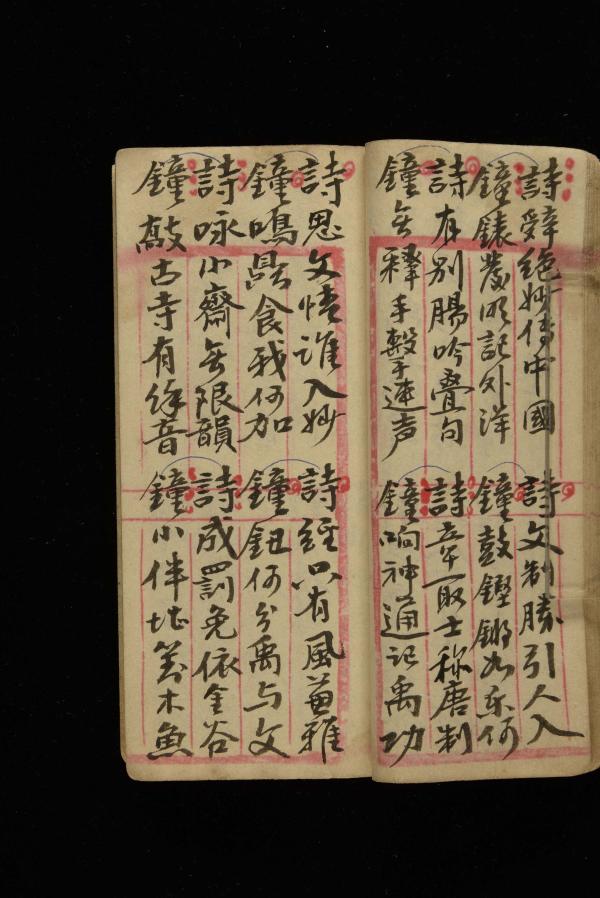 詩辞絶妙傳中國
鐘錶發明記外洋
詩有别腸吟叠句
鐘無釋手擊連声
詩文制勝引人入
鐘鼓鏗鏘如乐何
詩章取士称唐制
鐘响神通记禹功
詩思文情誰入妙
鐘鳴鼎食我何加
詩咏小齋無限韻
鐘敲古寺有餘音
詩經只有風兼雅
鐘鈕何分禹与文
詩成罰免依金谷
鐘小伴堪木魚